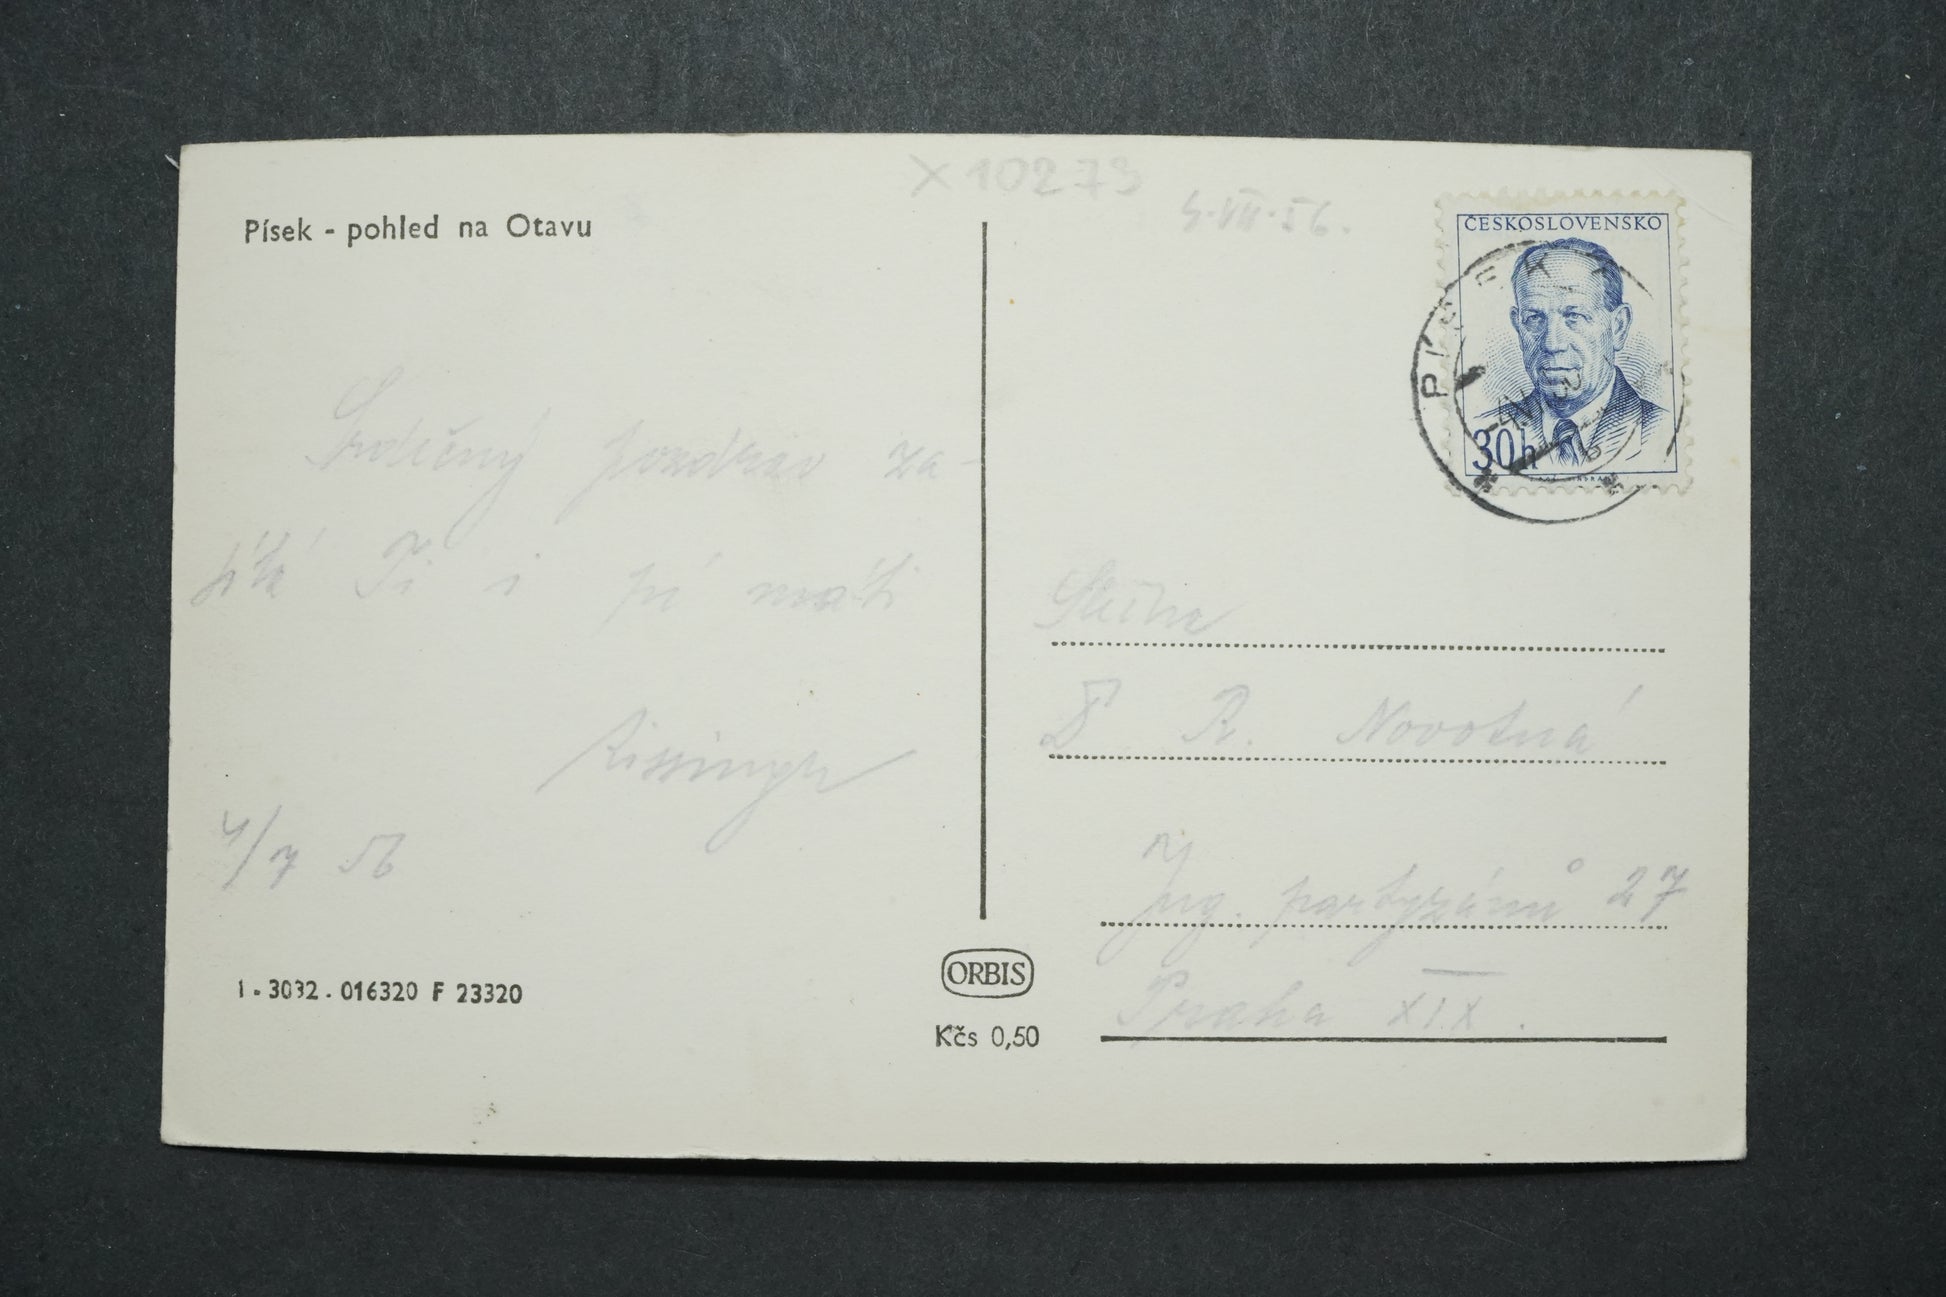 X 10273
4.VII.56.
Písek - pohled na Otavu
ČESKOSLOVENSKO
PÍSEK 1
30h
Srdečný pozdrav za-
sílá Ti i pí máti
4/7 56
Slečna
R. Novotná
Jug. partyzánů 27
Praha XIX.
1 - 3032 . 016320 F 23320
ORBIS
Kčs 0,50